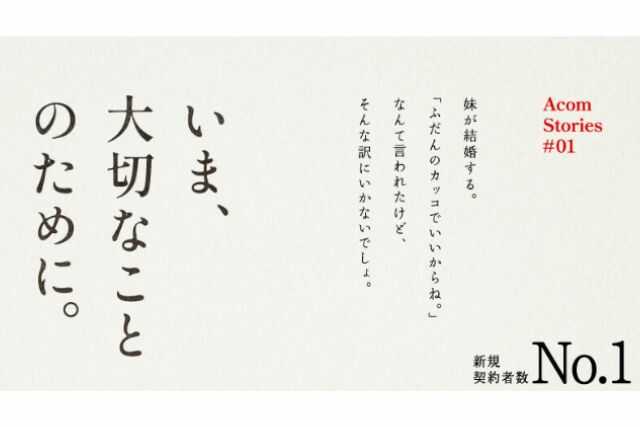 Acom
Stories
#01
妹が結婚する。
「ふだんのカッコでいいからね。」
なんて言われたけど、
そんな訳にいかないでしょ。
いま、
大切なこと
のために。
新規
契約者数
No.1